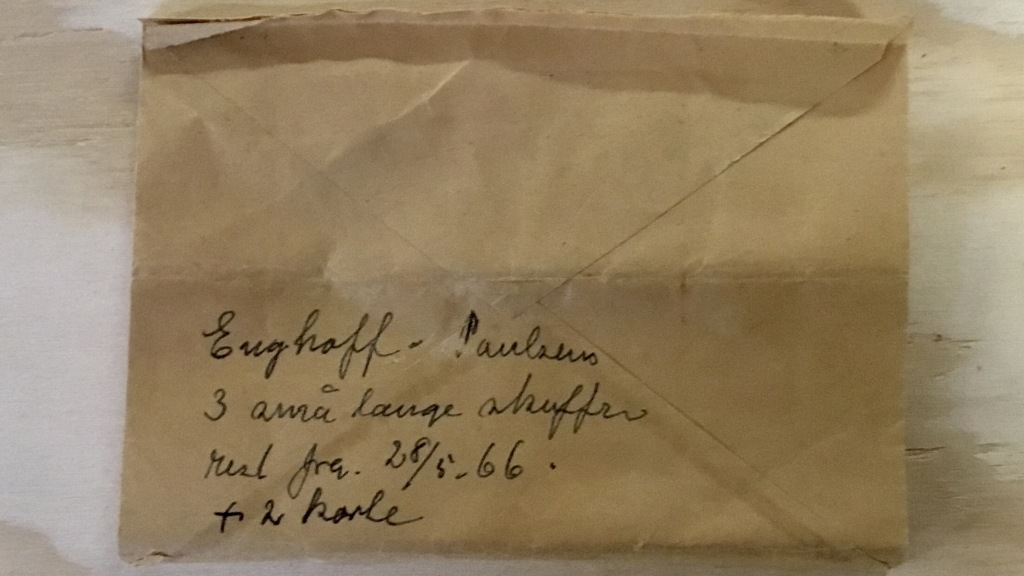 Enghoff - Paulsens
3 små lange skuffer
rest fra. 28/5-66.
+ 2 korte